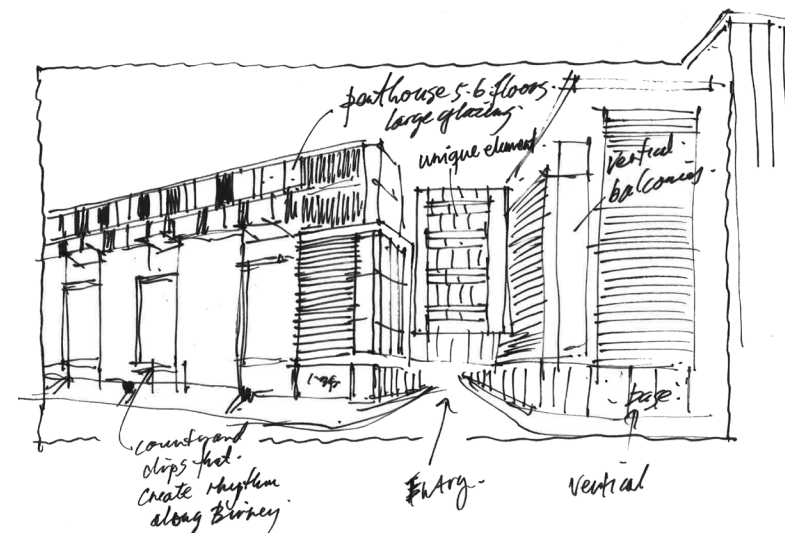 penthouse 5-6 floors.
large glazing.
unique element
vertical
balconies.
base
courtyard
clips that
create rhythm
along Birney.
Entry.
vertical